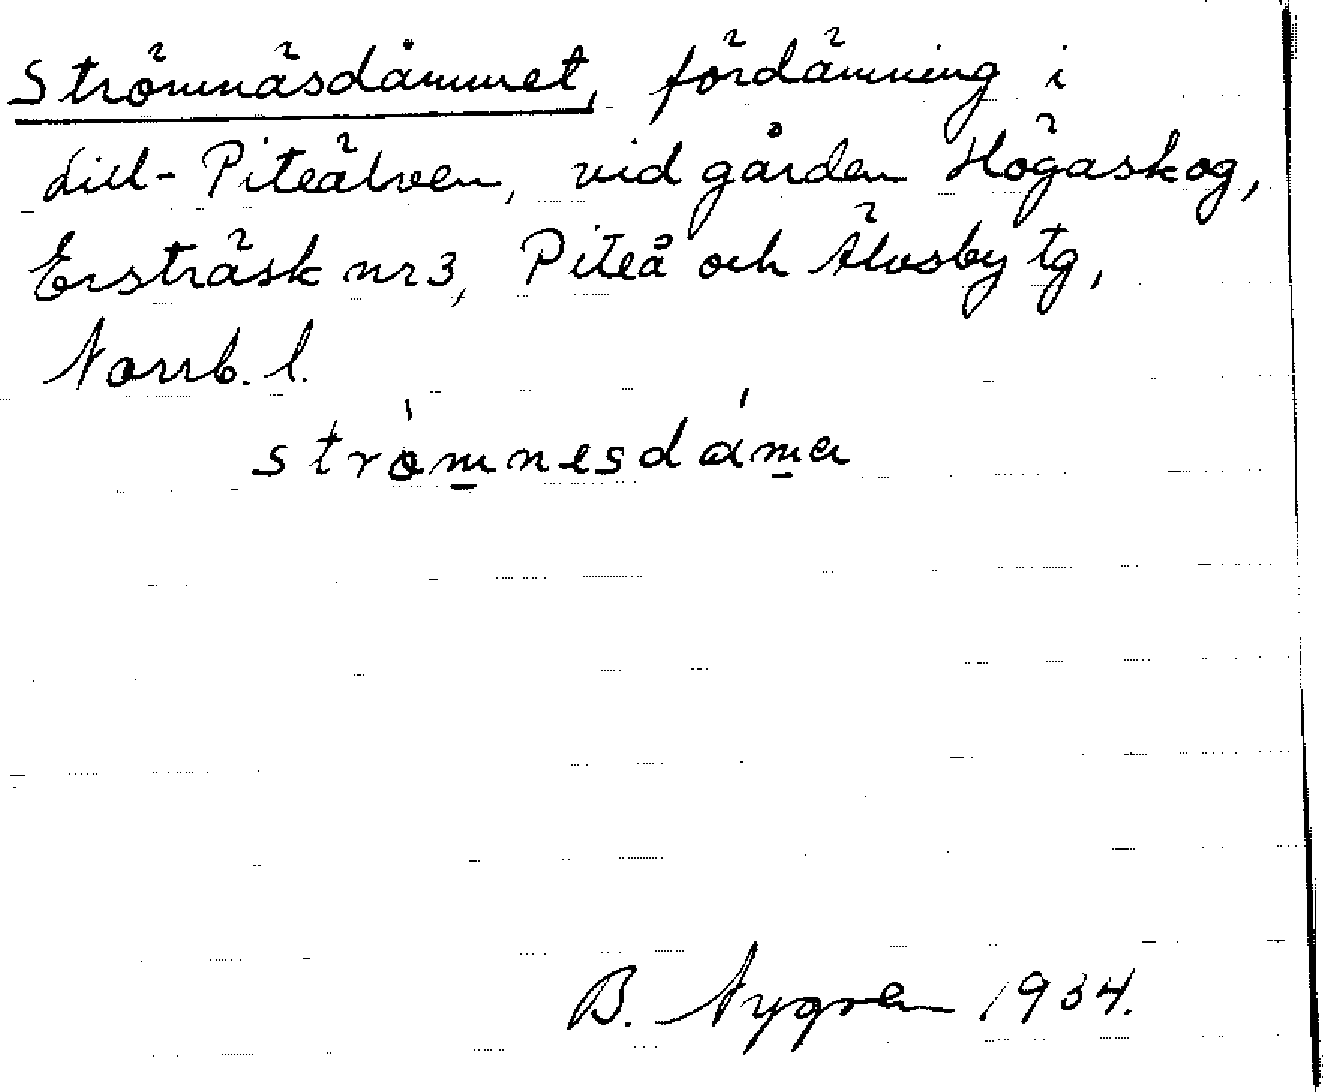 Strömnäsdåmmet, fördämning i
Lill-Piteälven, vid gården Högaskog,
Ersträsk nr 3, Piteå och Älvsby tg,
Norrb. l.
strömnesdåma
B. Nygren 1934.